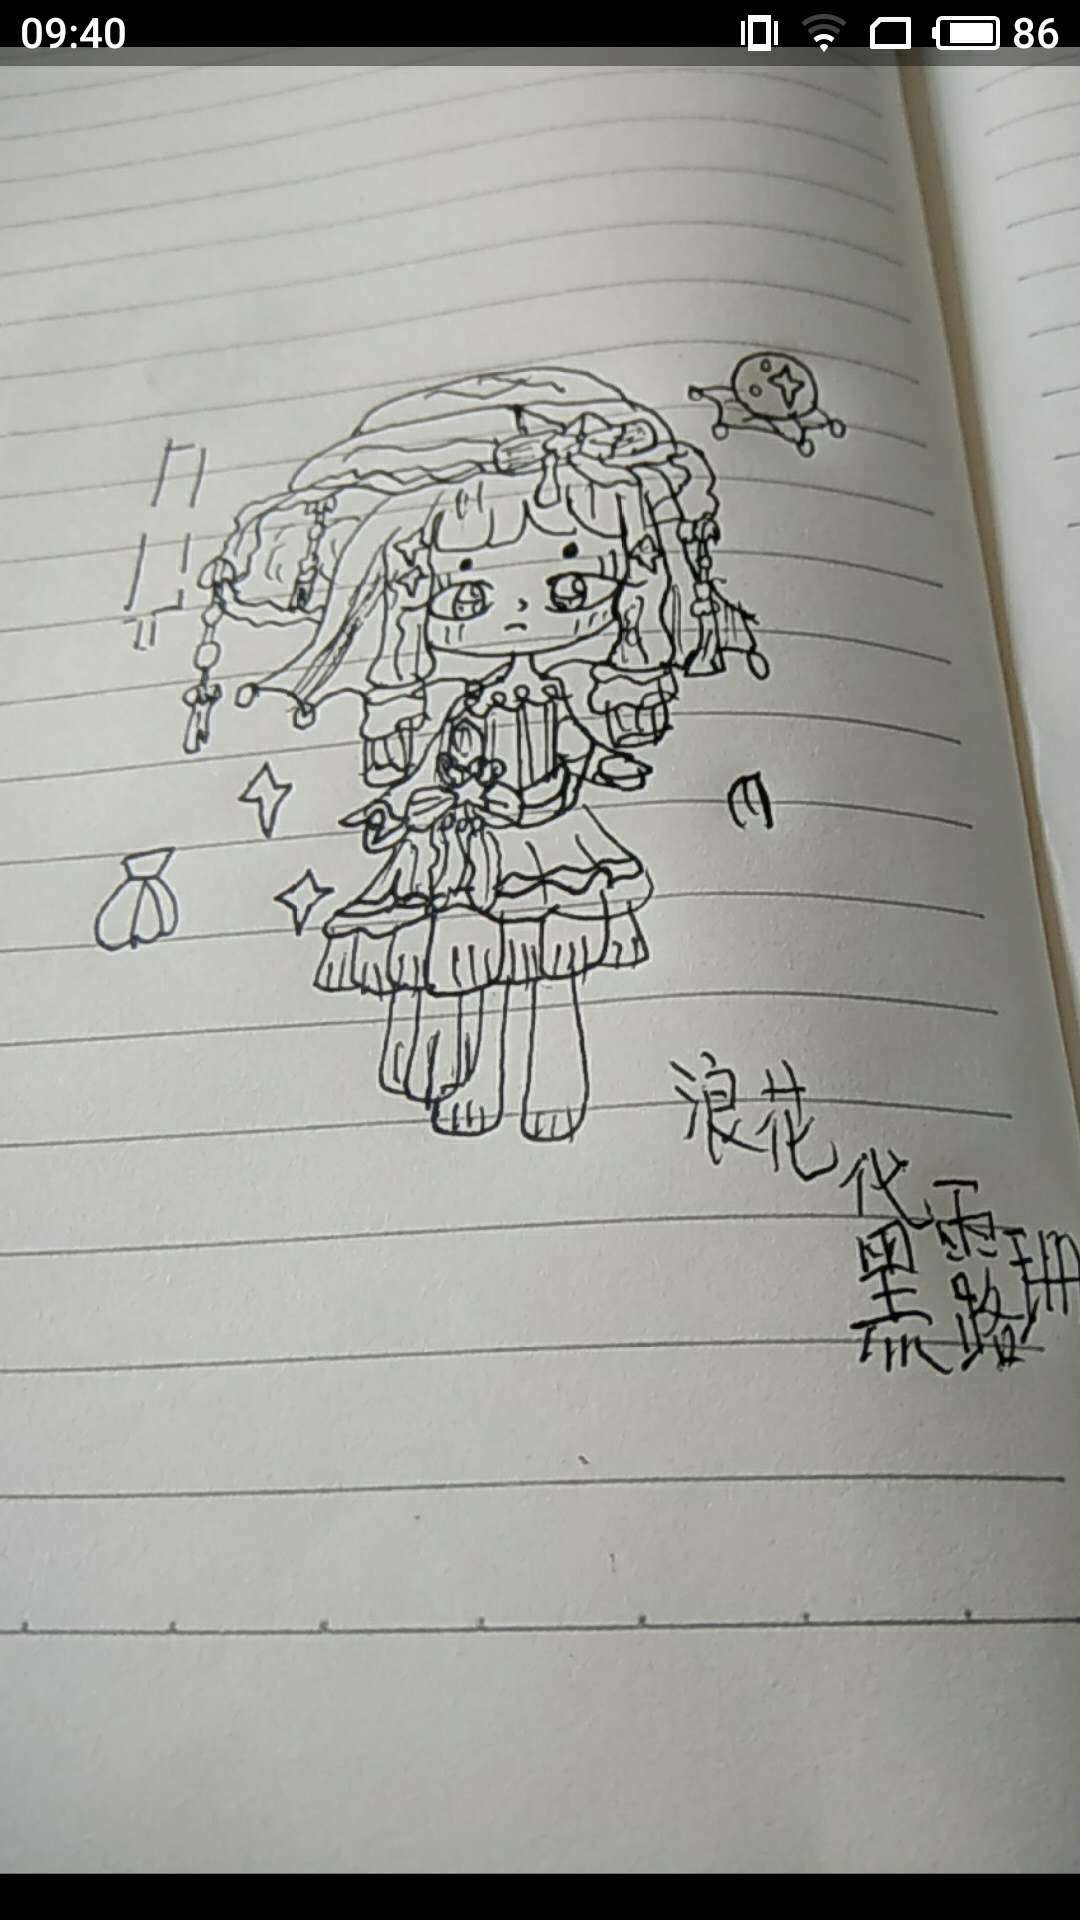 09:40
86
浪花
代雷
黑路珊